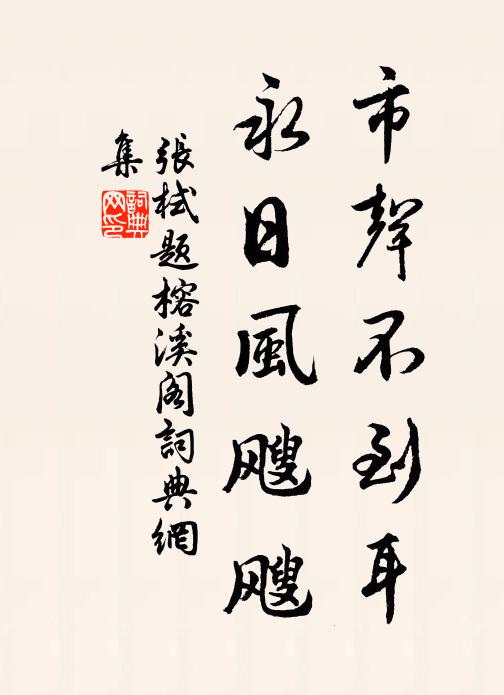 市聲不到耳
永日風颼颼
張栻題榕溪阁詞典網
集
詞典网印